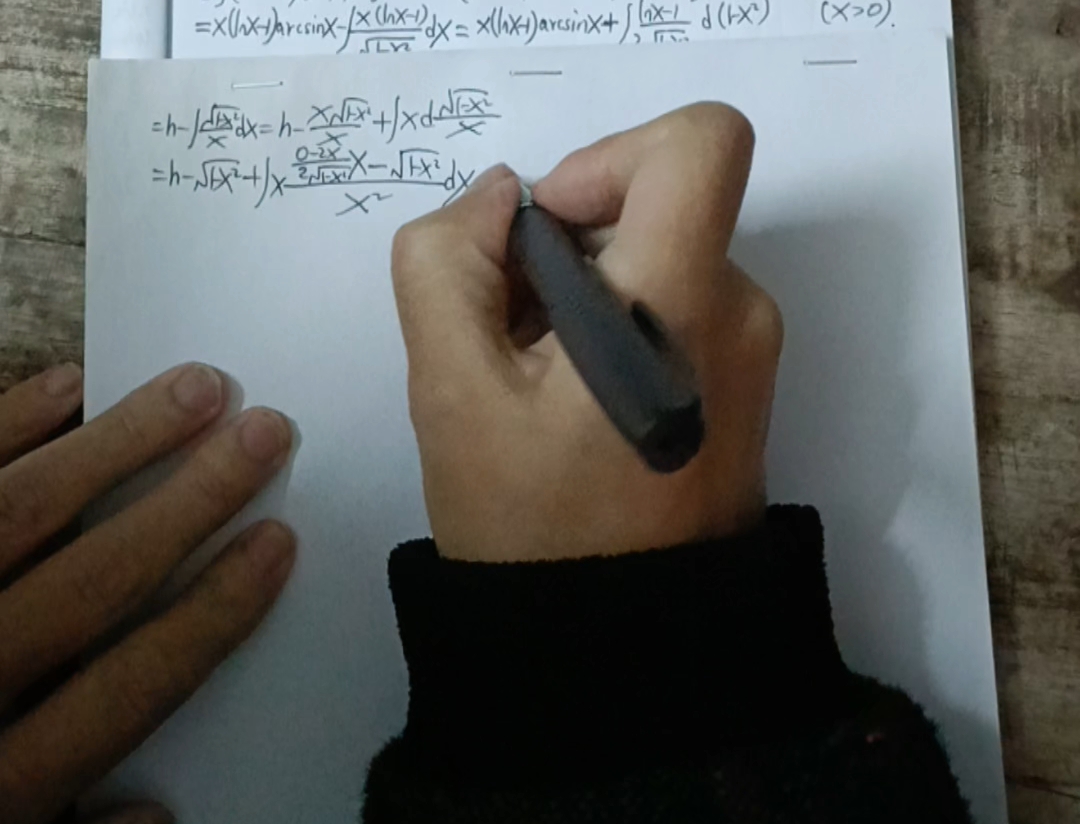 =x(lnx-1)arcsinx-∫x(lnx-1)/√(1-x²) dx = x(lnx-1)arcsinx+∫(lnx-1)/(2√(1-x²)) d(1-x²) (x>0).
=h-∫√(1-x²)/x dx=h-x√(1-x²)/x+∫xd√(1-x²)/x
=h-√(1-x²)+∫x ((0-2x)/(2√(1-x²)) x-√(1-x²))/x² dx